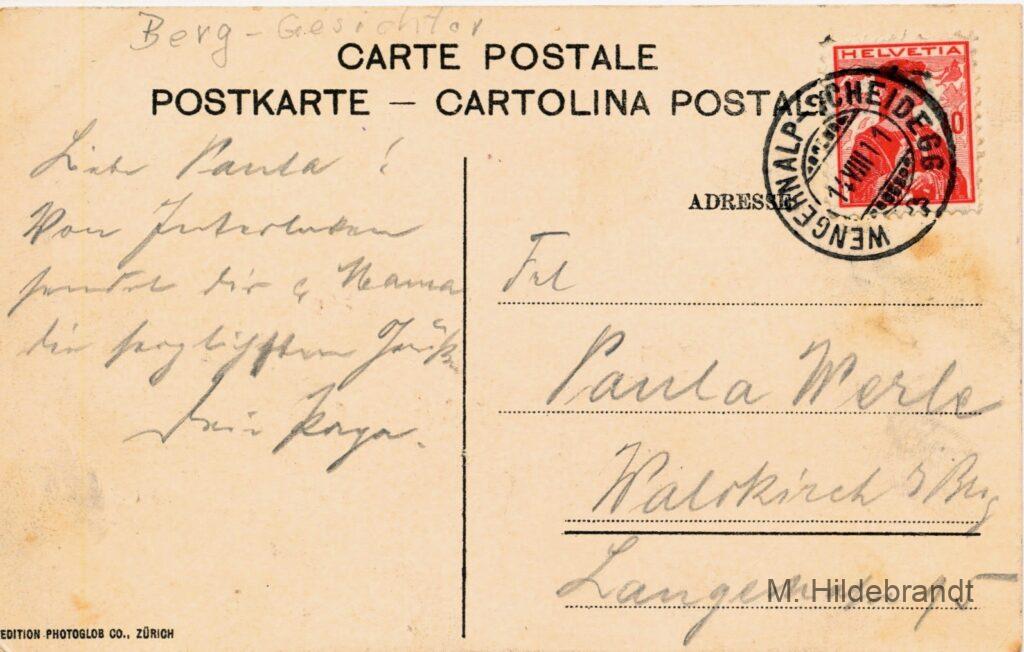 Berg-Gesichter
CARTE POSTALE
POSTKARTE — CARTOLINA POSTALE
HELVETIA
10
WENGERNALP-SCHEIDEGG
14.VIII.11
ADRESSE
Liebe Paula!
Von Interlaken
sendet dir & Mama
die herzlichsten Grüße
Dein Papa.
Frl
Paula Werle
Waldkirch
M. Hildebrandt
EDITION PHOTOGLOB CO., ZÜRICH